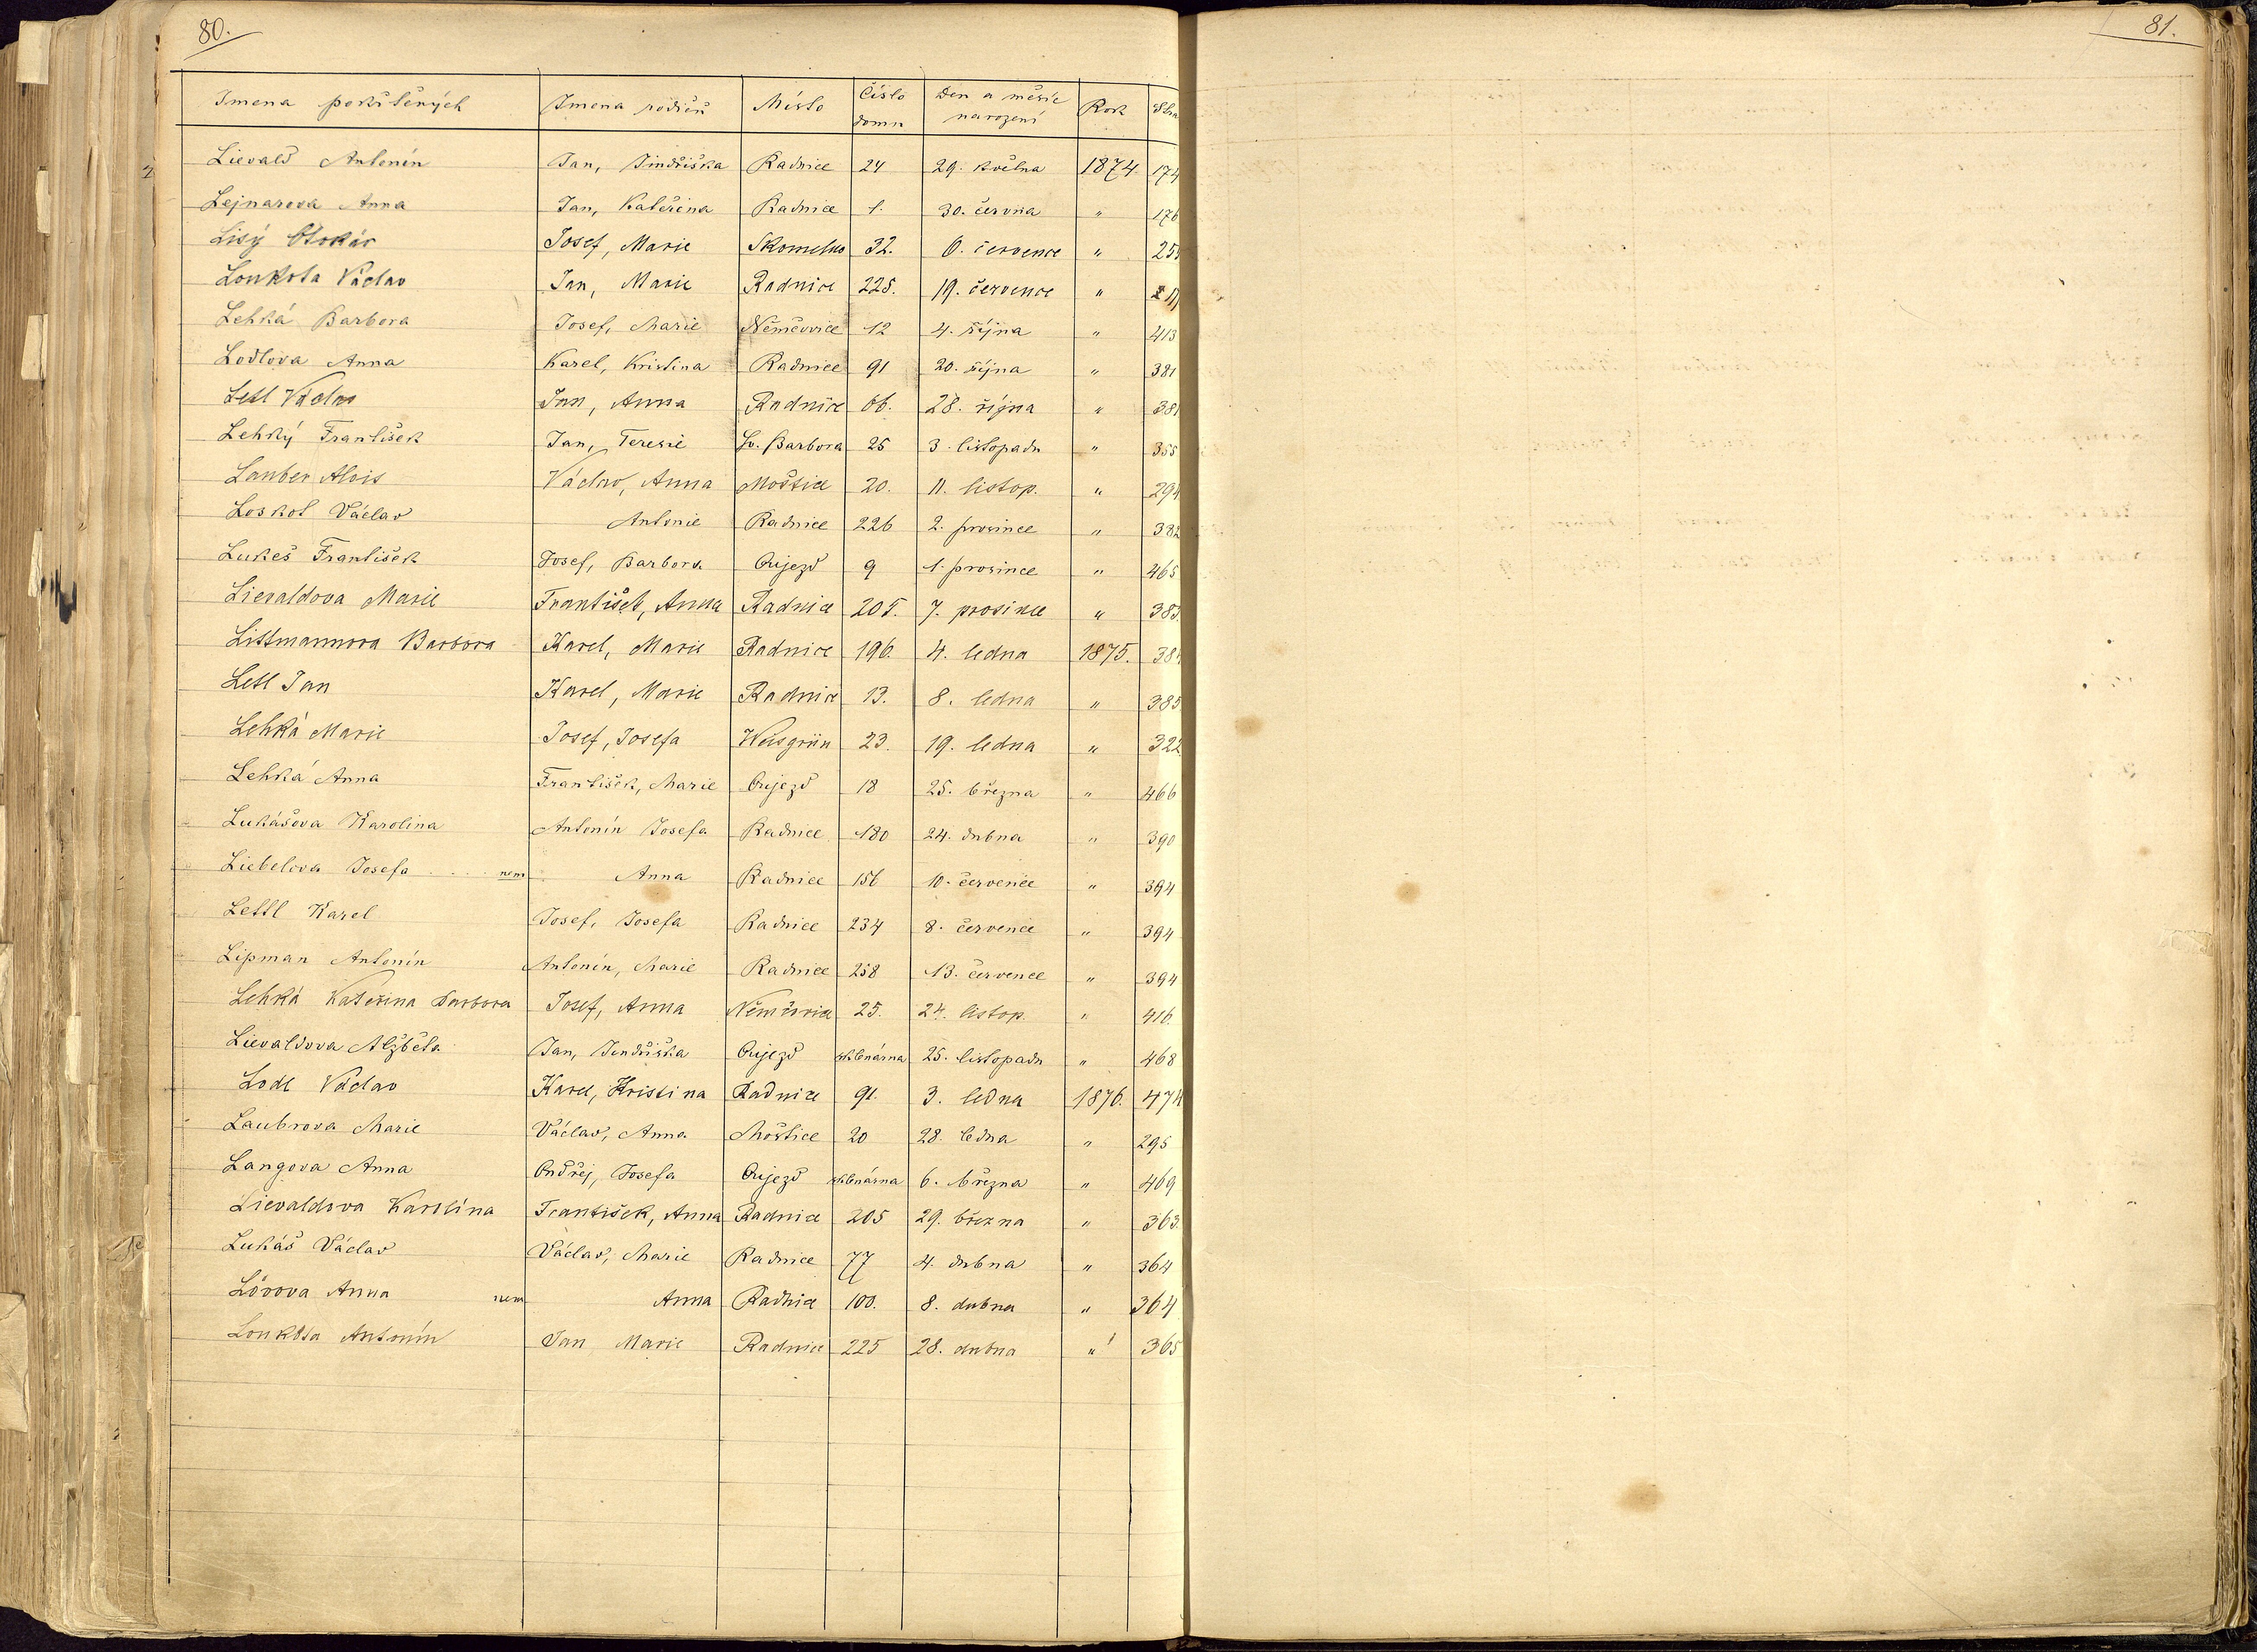 80.
81.
Jmena pokřtěných Jmena rodičů Místo Číslo domu Den a měsíc narození Rok
Lievald Antonín Jan, Jindřiška Radnice 24 29. května 1874. 174
Lejnarova Anna Jan, Kateřina Radnice 1. 30. června " 176
Lisý Otokár Josef, Marie Skomelno 32. 6. července " 255
Loukota Václav Jan, Marie Radnice 225. 19. července "
Lehká Barbora Josef, Marie Němčovice 12 4. října " 413
Lodlova Anna Karel, Kristina Radnice 91 20. října " 381
Letl Václav Jan, Anna Radnice 66. 28. října " 381
Lehký František Jan, Teresie Sv. Barbora 25 3. listopadu " 355
Lauber Alois Václav, Anna Moštice 20. 11. listop. " 294
Loskot Václav Antonie Radnice 226 2. prosince " 382
Lukeš František Josef, Barbora Oujezd 9 1. prosince " 465
Lievaldova Marie František, Anna Radnice 205. 7. prosince " 383.
Littmannova Barbora Karel, Marie Radnice 196. 4. ledna 1875. 384
Letl Jan Karel, Marie Radnice 13. 8. ledna " 385
Lehká Marie Josef, Josefa Weisgrün 23. 19. ledna " 322
Lehká Anna František, Marie Oujezd 18 25. března " 466
Lukášova Karolina Antonín Josefa Radnice 180 24. dubna " 390
Liebelova Josefa .... nem Anna Radnice 156 10. července " 394
Lettl Karel Josef, Josefa Radnice 234 8. července " 394
Lipman Antonín Antonín, Marie Radnice 258 13. července " 394
Lehká Kateřina Barbora Josef, Anna Němčovice 25. 24. listop. " 416.
Lievaldova Alžběta Jan, Jindřiška Oujezd sklenárna 25. listopadu " 468
Lodl Václav Karel, Kristina Radnice 91. 3. ledna 1876. 474
Laubrova Marie Václav, Anna Moštice 20 28. ledna " 295
Langova Anna Ondřej, Josefa Oujezd sklenárna 6. března " 469
Lievaldova Karolína František, Anna Radnice 205 29. března " 363.
Lukáš Václav Václav, Marie Radnice 77 4. dubna " 364
Lövova Anna nem Anna Radnice 100. 8. dubna " 364
Loukota Antonín Jan Marie Radnice 225 28. dubna " 365